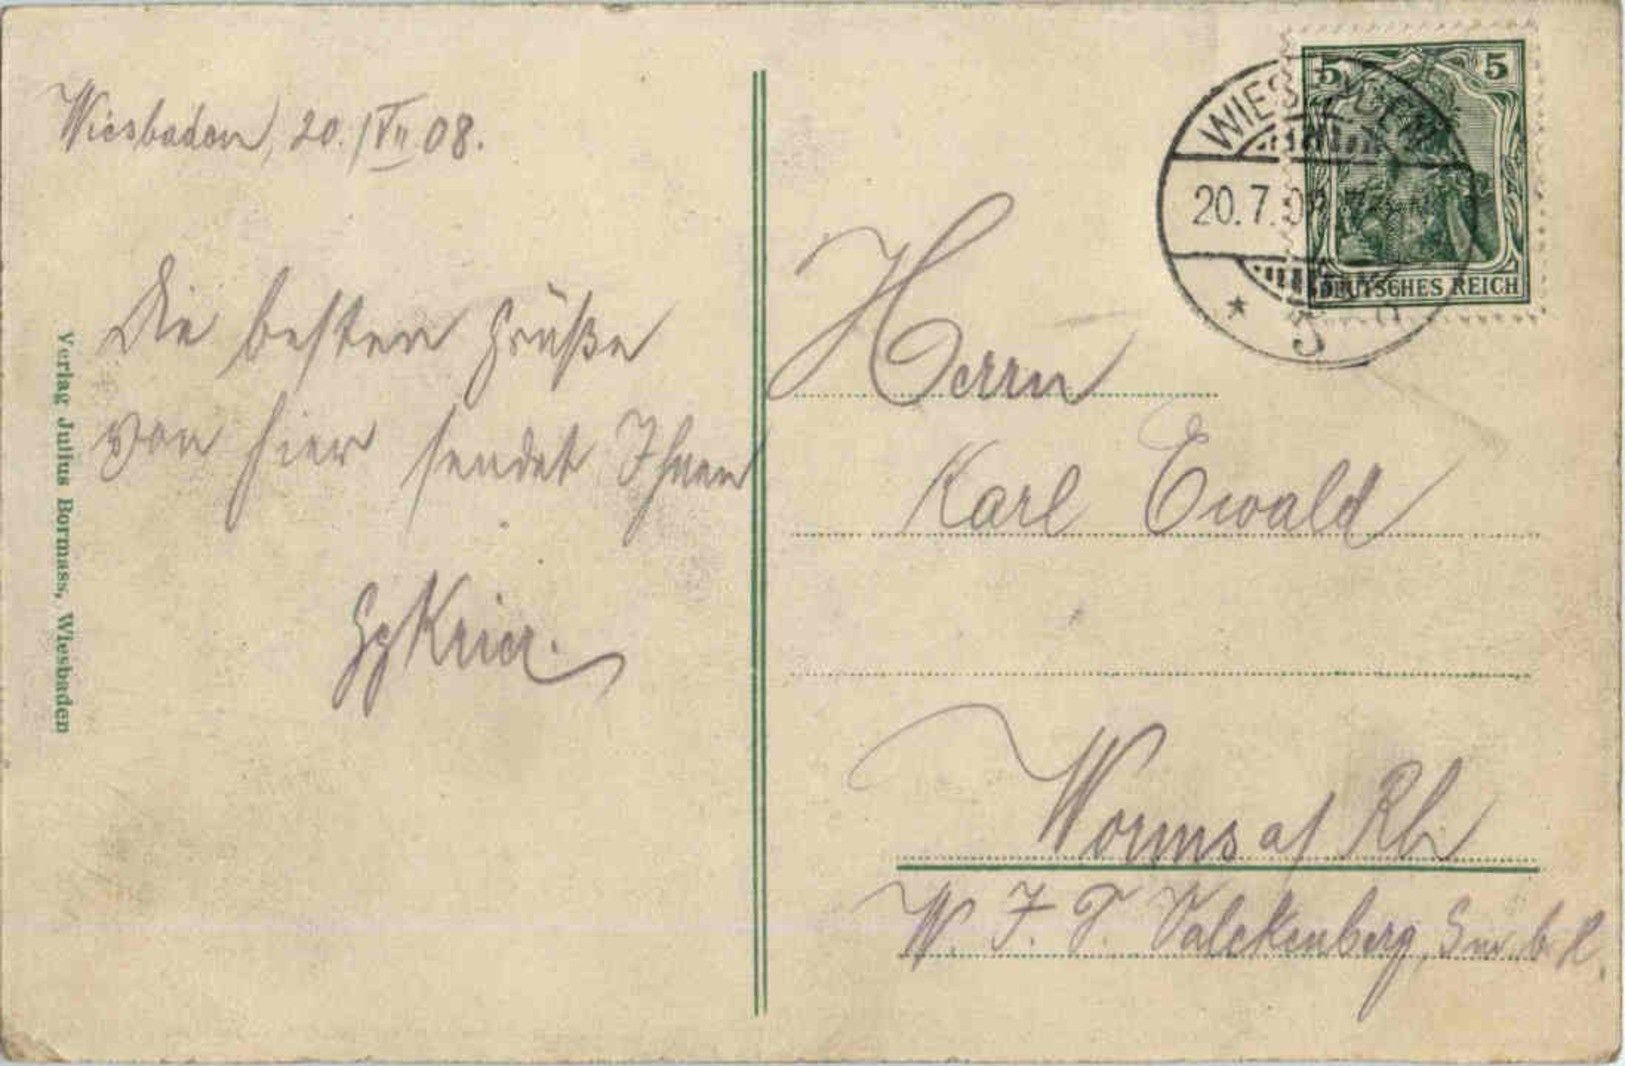 Wiesbaden, 20./VII 08.
Die besten Grüße
von hier sendet Ihnen
Verlag Julius Bormass, Wiesbaden
5 5
DEUTSCHES REICH
WIESBADEN
20.7.08
* 5
Herrn
Karl Ewald
Worms a/ Rh
Valckenberg, Gm. b. H.